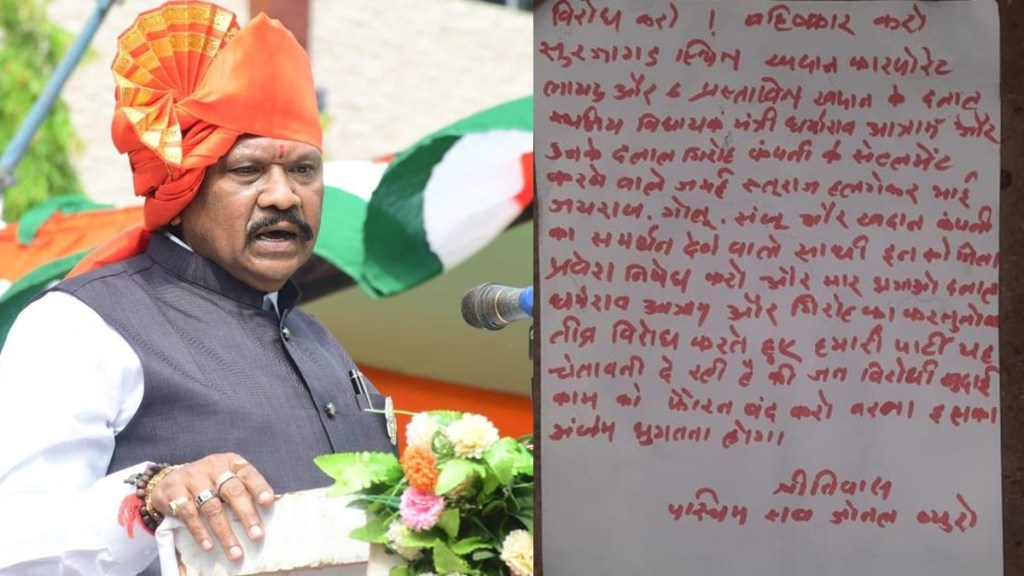 विरोध करो ! बहिष्कार करो
सुरजागड स्थित खदान कारपोरेट
और 6 प्रस्तावित खदान के दलाल
स्थानिय विधायक मंत्री धर्मराव आत्राम और
उनके दलाल गिरोह कंपनी के सेटलमेंट
करने वाले जमई हलगेकर भाई
जयराव. गोलू. संजू और खदान कंपनी
का समर्थन देने वाले साथी इन को जिला
प्रवेश निषेध करो और मार भगाओ दलाल
धर्मराव आत्राम और गिरोह का
तीव्र विरोध करते हुए हमारी पार्टी यह
चेतावनी दे रही है की जन विरोधी खुदाई
काम को फौरन बंद करो वरना इसका
अंजाम भुगतना होगा।
श्रीनिवास
पश्चिम सब जोनल ब्युरो